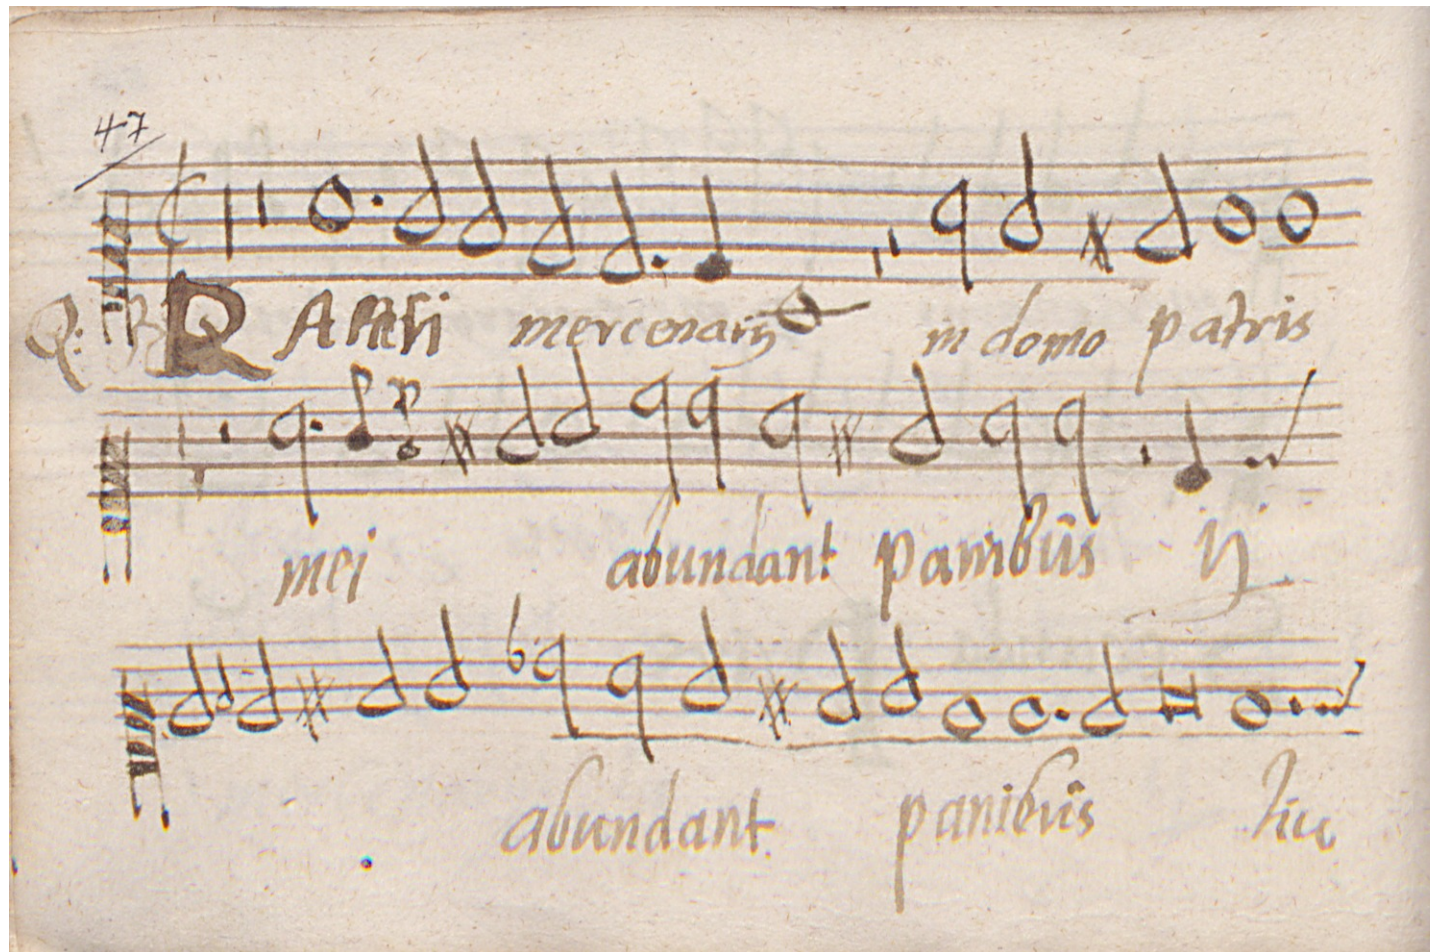 47
mercenarij in domo patris
mei abundant panibus ij
abundant panibus hic